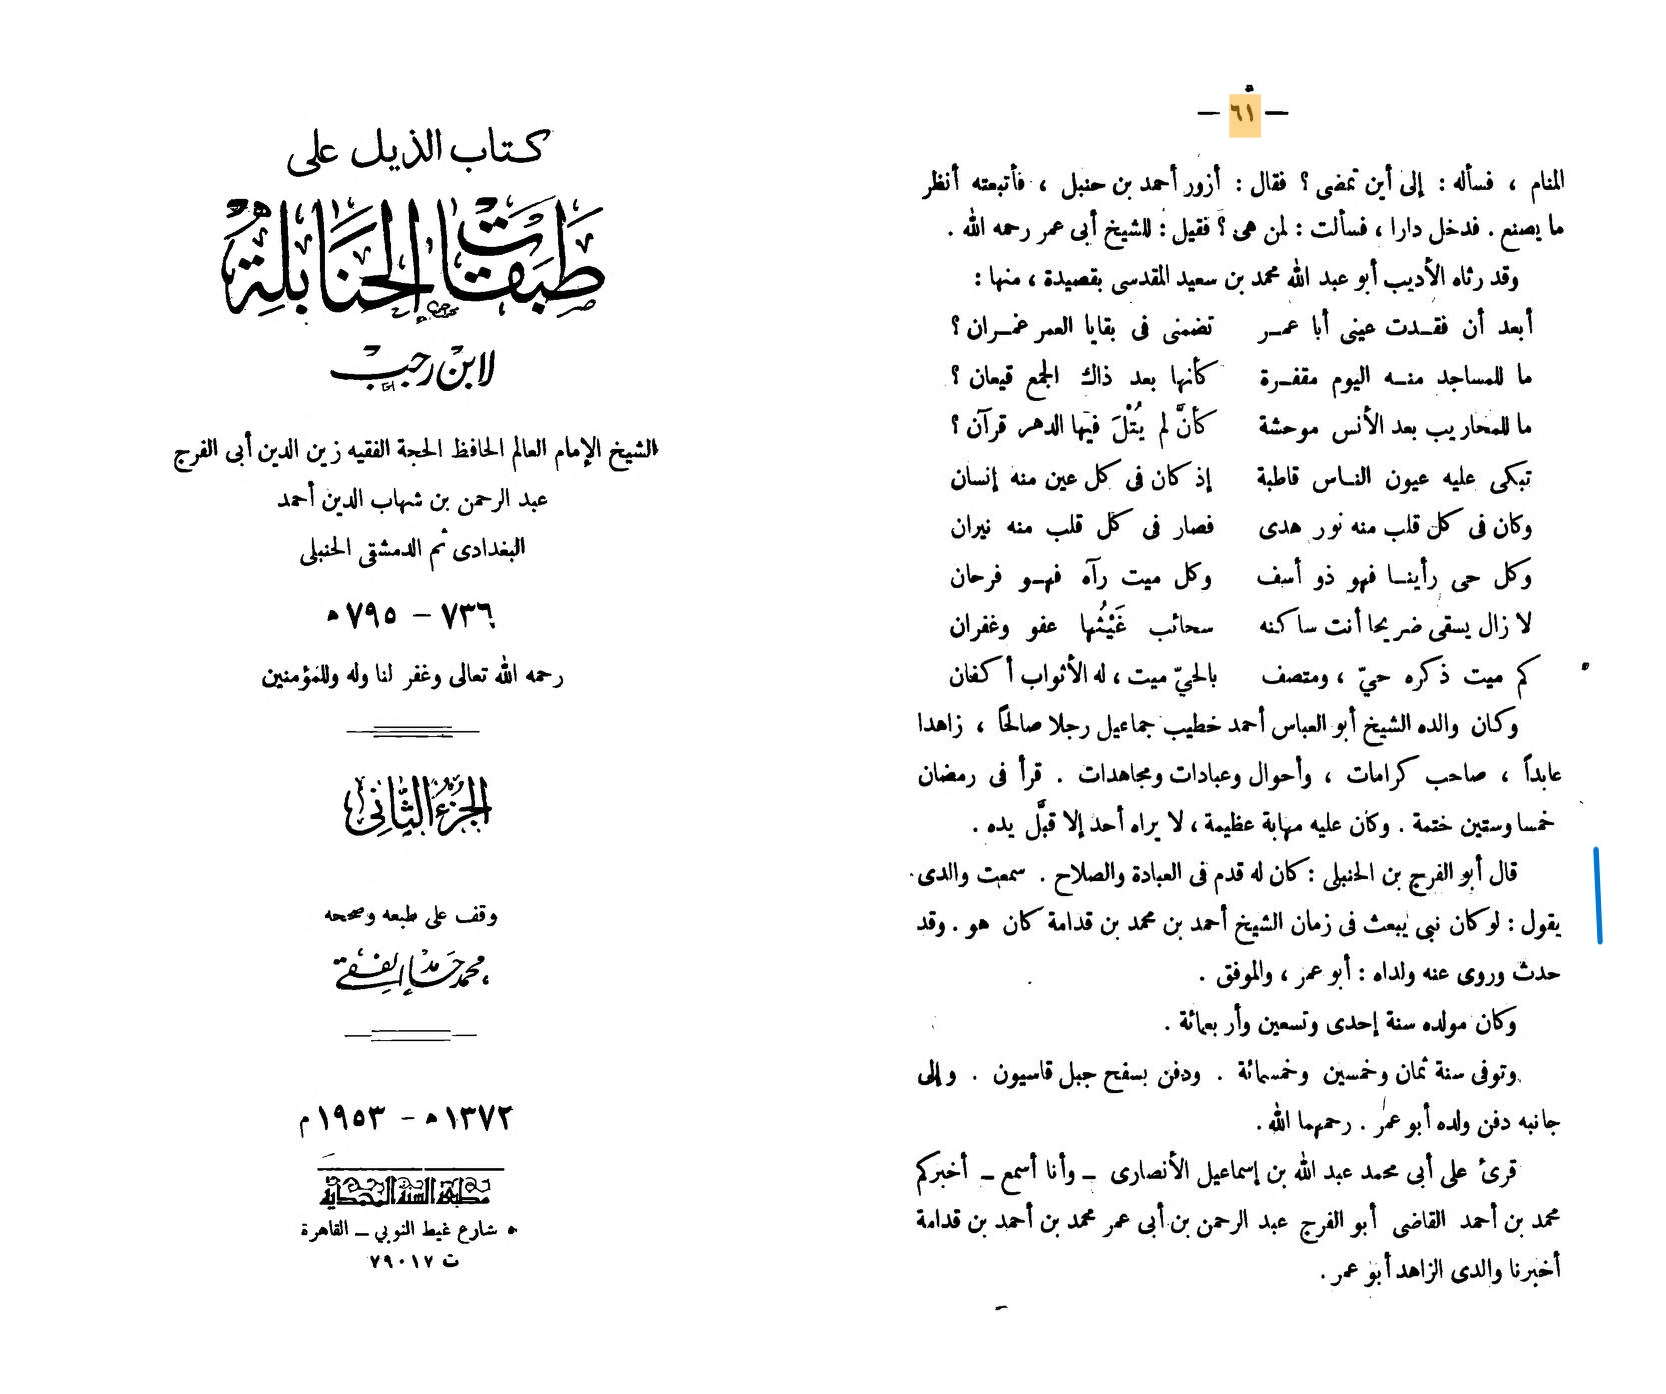 كتاب الذيل على
طبقات الحنابلة
لابن رجب
الشيخ الإمام العالم الحافظ الحجة الفقيه زين الدين أبى الفرج
عبد الرحمن بن شهاب الدين أحمد
البغدادى ثم الدمشقى الحنبلى
٧٣٦ – ٧٩٥ ه
رحمه الله تعالى وغفر لنا وله وللمؤمنين
الجزء الثانى
وقف على طبعه وصححه
محمد حامد الفقى
١٣٧٢ ه – ١٩٥٣ م
مطبعة السنة المحمدية
٥ شارع غيط النوبي – القاهرة
ت ٧٩٠١٧
— ٦١ —
المنام ، فسأله : إلى أين تمضى ؟ فقال : أزور أحمد بن حنبل ، فأتبعته أنظر
ما يصنع . فدخل دارا ، فسألت : لمن هى ؟ فقيل : للشيخ أبى عمر رحمه الله .
وقد رثاه الأديب أبو عبد الله محمد بن سعيد المقدسى بقصيدة ، منها :
أبعد أن فقـدت عينى أبا عمـر تضمنى فى بقايا العمر عمـران ؟
ما للمساجد منـه اليوم مقفـرة كأنها بعد ذاك الجمع قيعان ؟
ما للمحاريب بعد الأنس موحشة كأنَّ لم يُتْلَ فيها الدهر قرآن ؟
تبكى عليه عيون النـاس قاطبة إذ كان فى كل عين منه إنسان
وكان فى كل قلب منه نور هدى فصار فى كل قلب منه نيران
وكل حى رأينـا فهو ذو أسف وكل ميت رآه فهـو فرحان
لا زال يسقى ضريحا أنت ساكنه سحائب غَيْثُها عفو وغفران
كم ميت ذكره حيّ ، ومتصف بالحيّ ميت ، له الأثواب أكفان
وكان والده الشيخ أبو العباس أحمد خطيب جماعيل رجلا صالحًا ، زاهدا
عابداً ، صاحب كرامات ، وأحوال وعبادات ومجاهدات . قرأ فى رمضان
خمسا وستين ختمة . وكان عليه مهابة عظيمة ، لا يراه أحد إلا قبَّل يده .
قال أبو الفرج بن الحنبلى : كان له قدم فى العبادة والصلاح . سمعت والدى
يقول : لو كان نبى يُبعث فى زمان الشيخ أحمد بن محمد بن قدامة كان هو . وقد
حدث وروى عنه ولداه : أبو عمر ، والموفق .
وكان مولده سنة إحدى وتسعين وأربعمائة .
وتوفى سنة ثمان وخمسين وخمسمائة . ودفن بسفح جبل قاسيون . وإلى
جانبه دفن ولده أبو عمر . رحمهما الله .
قرئ على أبى محمد عبد الله بن إسماعيل الأنصارى – وأنا أسمع – أخبركم
محمد بن أحمد القاضى أبو الفرج عبد الرحمن بن أبى عمر محمد بن أحمد بن قدامة
أخبرنا والدى الزاهد أبو عمر .